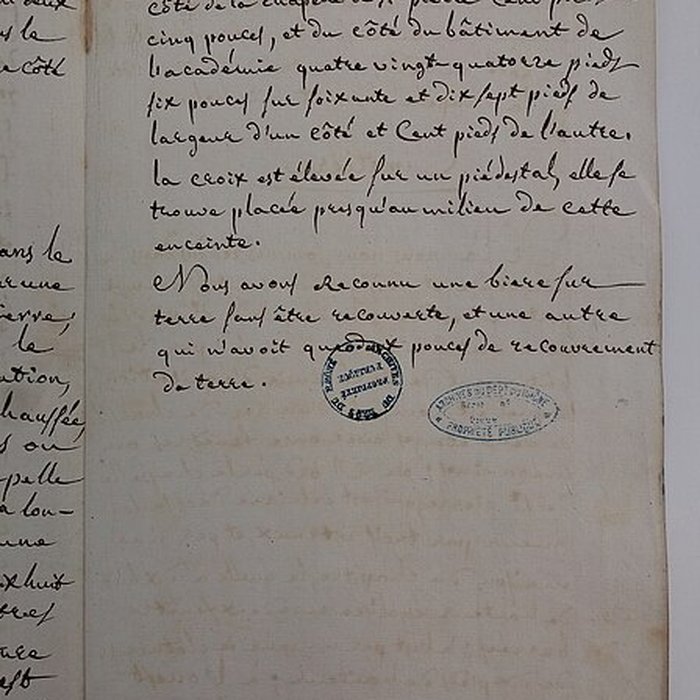 deux
le
côté
ans le
une
le
ation,
chaussée,
ou
pelle
a lon-
une
ixhuit
tres
côté de la chapelle de St pierre Cent pieds
cinq pouces, et du côté du bâtiment de
l'académie quatre vingt-quatorze pieds
six pouces sur soixante et dix sept pieds de
largeur d'un côté et Cent pieds de l'autre.
la croix est élevée sur un piédestal, elle se
trouve placée presqu'au milieu de cette
enceinte.
Nous avons Reconnu une biere sur
terre sans être recouverte, et une autre
qui n'avoit que dix pouces de recouvrement
de terre.
ARCHIVES DU RHÔNE
PROPRIÉTÉ PUBLIQUE
ARCHIVES DU DEPT DU RHÔNE
PROPRIÉTÉ PUBLIQUE